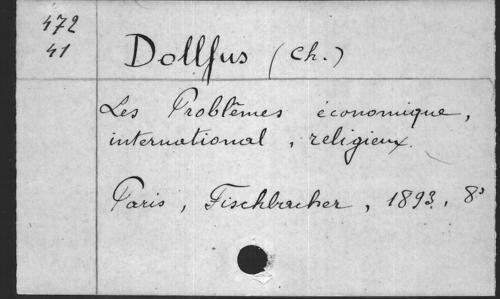 472
41
Dollfus (Ch.)
Les Problêmes économique,
international, religieux.
Paris, Fischbacher, 1893, 8°